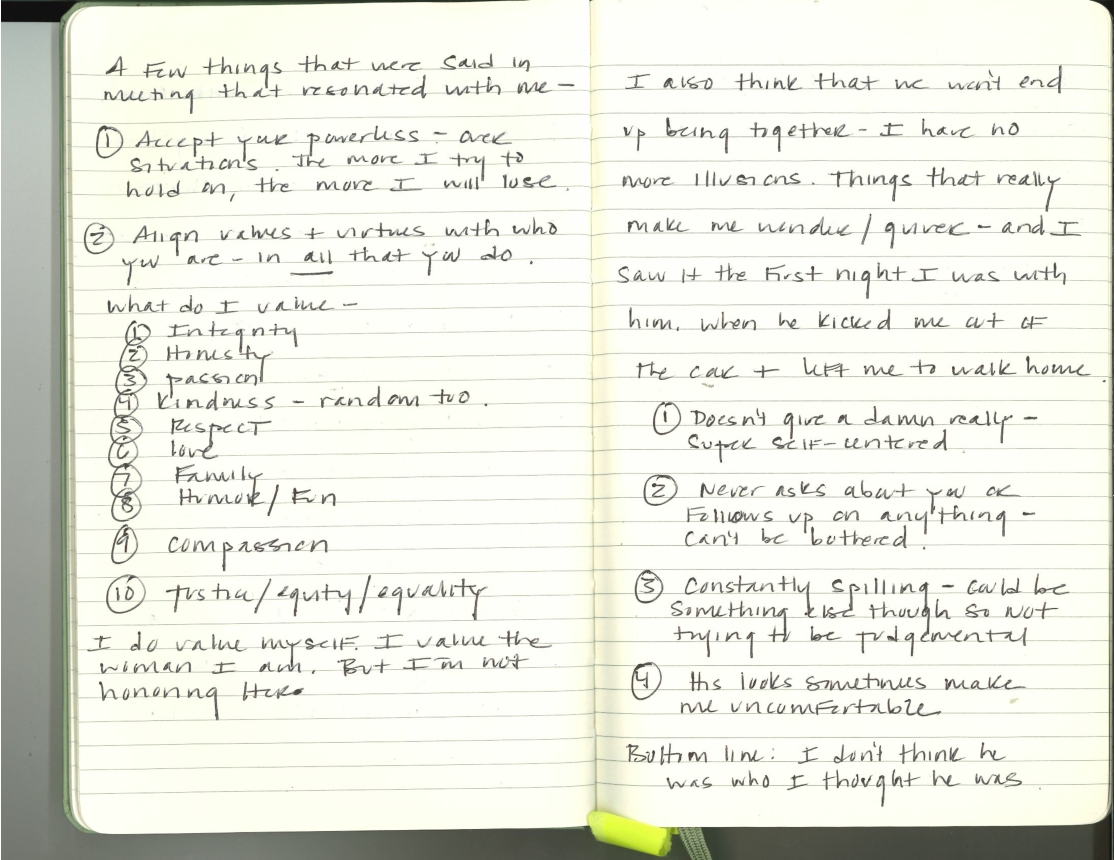 A Few things that were said in
meeting that resonated with me –
① Accept your powerless – over
situations. The more I try to
hold on, the more I will lose.
② Align values + virtues with who
you are – in all that you do.
What do I value –
① Integrity
② Honesty
③ passion
④ Kindness – random too.
⑤ Respect
⑥ love
⑦ Family
⑧ Humor / Fun
⑨ Compassion
⑩ Justice/equity/equality
I do value myself. I value the
woman I am. But I'm not
honoring Her.
I also think that we won't end
up being together – I have no
more Illusions. Things that really
make me wonder / quiver – and I
saw it the First night I was with
him. When he kicked me out of
the car + left me to walk home
① Doesn't give a damn really –
Super self-centered
② Never asks about you or
Follows up on anything –
Can't be bothered.
③ Constantly spilling – could be
something else though so not
trying to be judgemental
④ His looks sometimes make
me uncomfortable
Bottom line: I don't think he
was who I thought he was